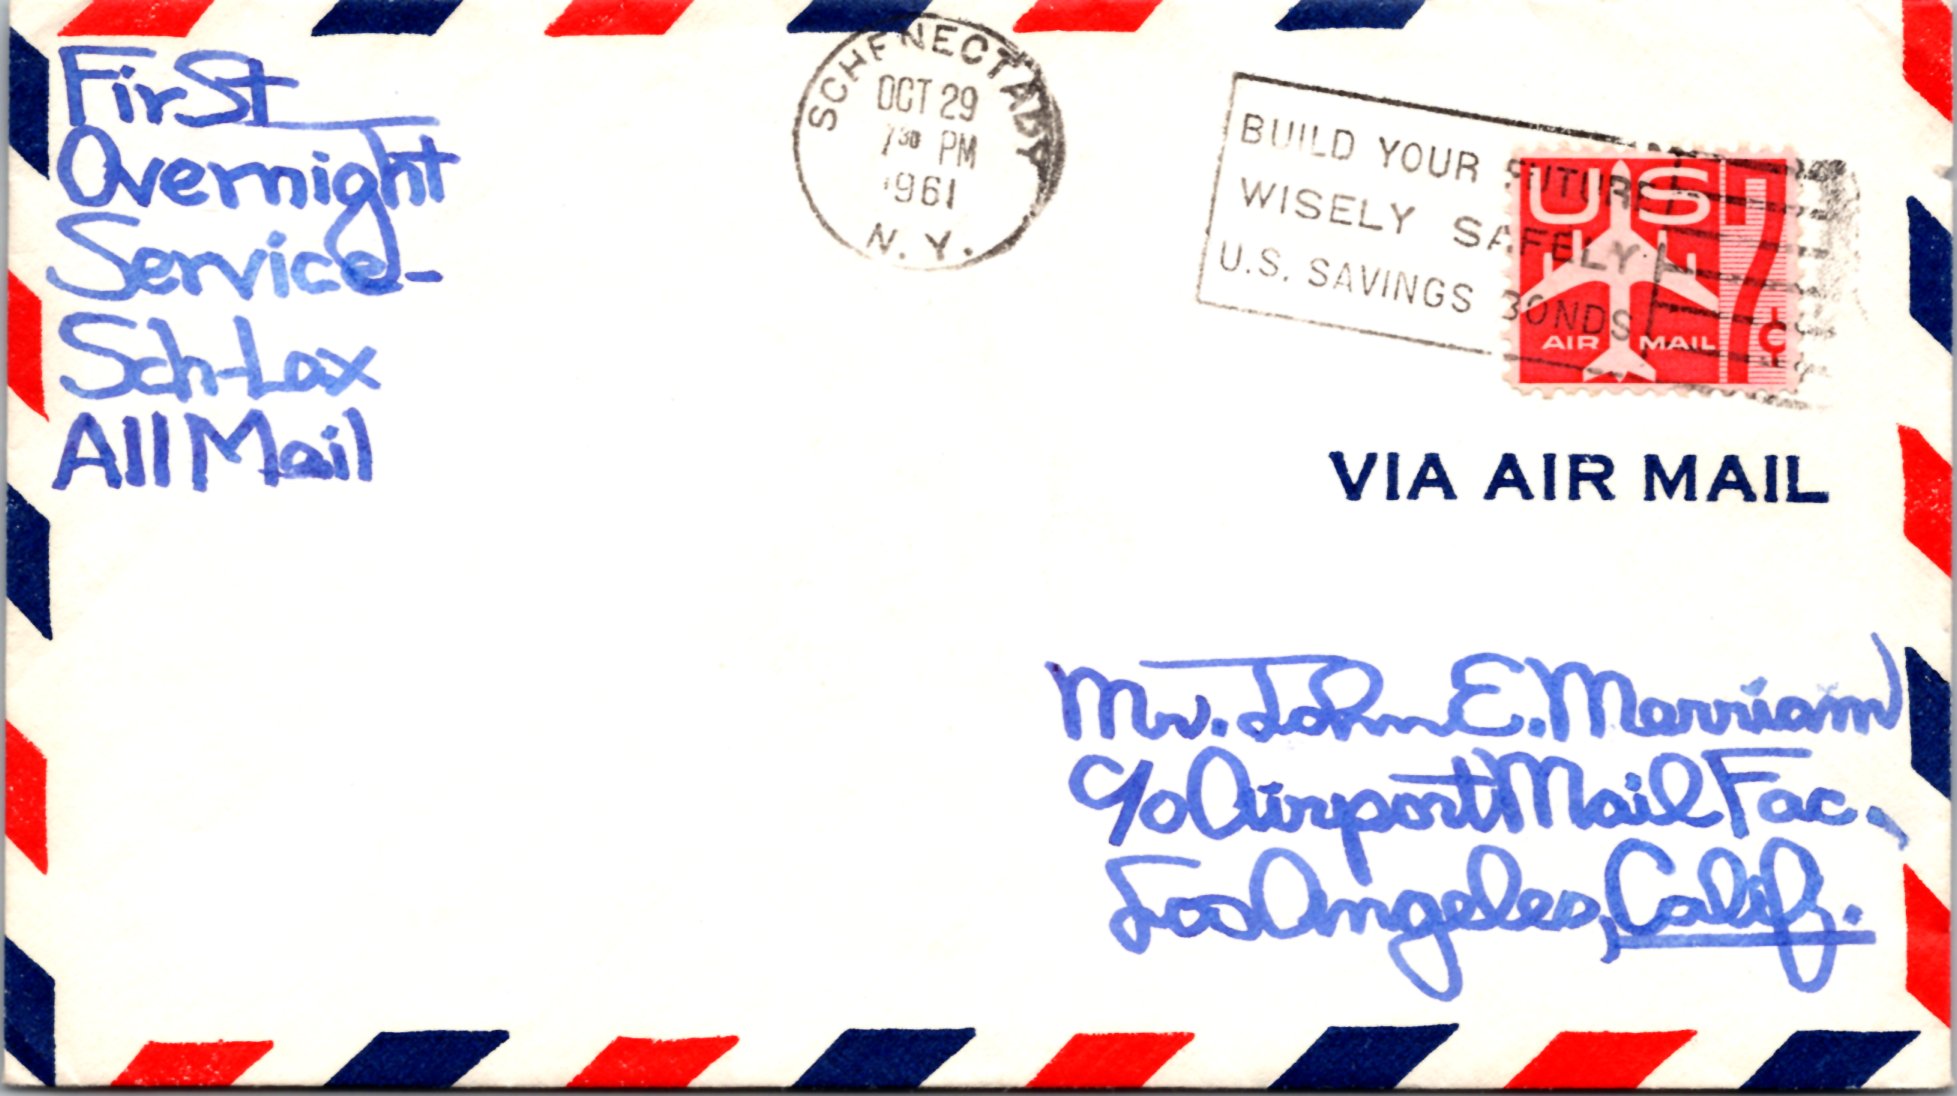 First
Overnight
Service-
Sch-Lax
All Mail
SCHENECTADY
OCT 29
7 30 PM
1961
N. Y.
BUILD YOUR FUTURE
WISELY SAFELY
U.S. SAVINGS BONDS
US 7¢
AIR MAIL
VIA AIR MAIL
Mr. John E. Merriam
c/o Airport Mail Fac.,
Los Angeles, Calif.